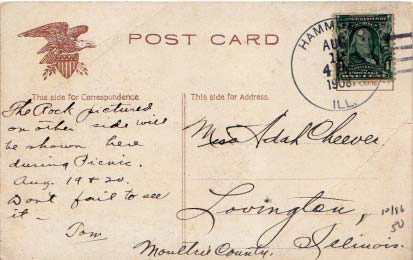 POST CARD
HAMM
AUG
4
1908
ILL.
This side for Correspondence.
This side for Address.
The Rock pictured
on other side will
be shown here
during Picnic.
Aug. 19 & 20.
Dont fail to see
it —
Tom
Miss Adah Cheever
Lovington,
Moultrie County, Illinois.
50